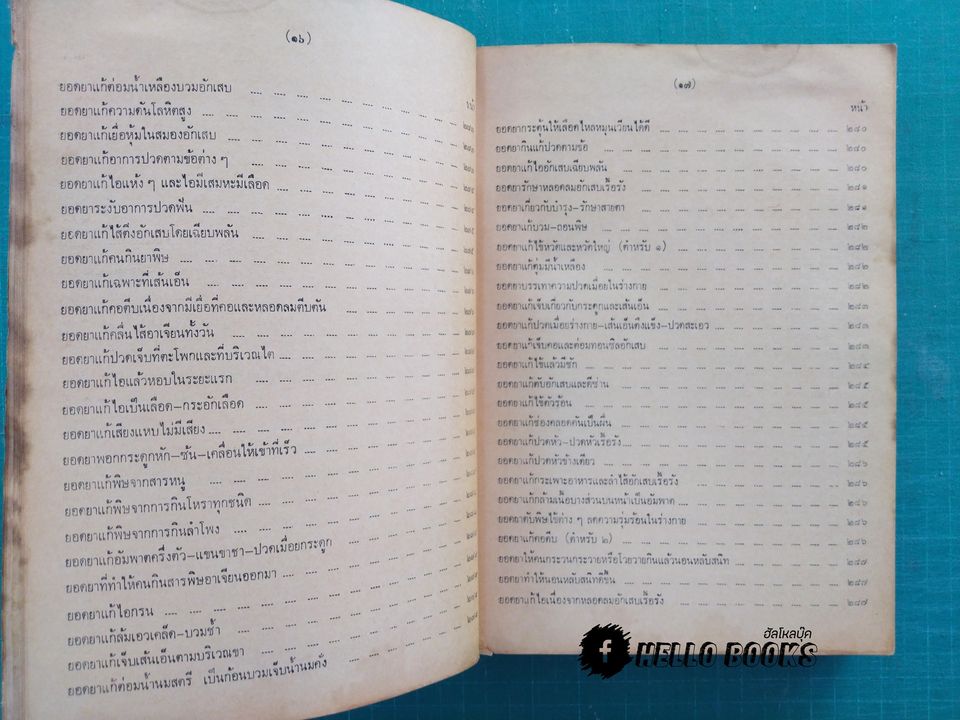 (๑๖)
ยอดยาแก้ต่อมน้ำเหลืองบวมอักเสบ
ยอดยาแก้ความดันโลหิตสูง
ยอดยาแก้เยื่อหุ้มในสมองอักเสบ
ยอดยาแก้อาการปวดตามข้อต่าง ๆ
ยอดยาแก้ไอแห้ง ๆ และไอมีเสมหะมีเลือด
ยอดยาระงับอาการปวดฟัน
ยอดยาแก้ไส้ติ่งอักเสบโดยเฉียบพลัน
ยอดยาแก้คนกินยาพิษ
ยอดยาแก้เฉพาะที่เส้นเอ็น
ยอดยาแก้คอตีบเนื่องจากมีเยื่อที่คอและหลอดลมตีบตัน
ยอดยาแก้คลื่นไส้อาเจียนทั้งวัน
ยอดยาแก้ปวดเจ็บที่ตะโพกและที่บริเวณไต
ยอดยาแก้ไอแล้วหอบในระยะแรก
ยอดยาแก้ไอเป็นเลือด-กระอักเลือด
ยอดยาแก้เสียงแหบไม่มีเสียง
ยอดยาพอกกระดูกหัก-ซ้น-เคลื่อนให้เข้าที่เร็ว
ยอดยาแก้พิษจากสารหนู
ยอดยาแก้พิษจากการกินโหราทุกชนิด
ยอดยาแก้พิษจากการกินลำโพง
ยอดยาแก้อัมพาตครึ่งตัว-แขนขาชา-ปวดเมื่อยกระดูก
ยอดยาที่ทำให้คนกินสารพิษอาเจียนออกมา
ยอดยาแก้ไอกรน
ยอดยาแก้ล้มเอวเคล็ด-บวมช้ำ
ยอดยาแก้เจ็บเส้นเอ็นตามบริเวณขา
ยอดยาแก้ต่อมน้ำนมสตรี เป็นก้อนบวมเจ็บน้ำนมคั่ง
(๑๗)
หน้า
ยอดยากระตุ้นให้เลือดไหลหมุนเวียนได้ดี ๒๘๐
ยอดยากินแก้ปวดตามข้อ ๒๘๐
ยอดยาแก้ไออักเสบเฉียบพลัน ๒๘๐
ยอดยารักษาหลอดลมอักเสบเรื้อรัง ๒๘๑
ยอดยาเกี่ยวกับบำรุง-รักษาสายตา ๒๘๑
ยอดยาแก้บวม-ถอนพิษ ๒๘๒
ยอดยาแก้ไข้หวัดและหวัดใหญ่ (ตำหรับ ๑) ๒๘๒
ยอดยาแก้ตุ่มมีน้ำเหลือง ๒๘๒
ยอดยาบรรเทาความปวดเมื่อยในร่างกาย ๒๘๒
ยอดยาแก้เจ็บเกี่ยวกับกระดูกและเส้นเอ็น ๒๘๓
ยอดยาแก้ปวดเมื่อยร่างกาย-เส้นเอ็นตึงแข็ง-ปวดสะเอว ๒๘๓
ยอดยาแก้เจ็บคอและต่อมทอนซิลอักเสบ ๒๘๓
ยอดยาแก้ไข้แล้วมีชัก ๒๘๔
ยอดยาแก้ตับอักเสบและดีซ่าน ๒๘๕
ยอดยาแก้ไข้ตัวร้อน ๒๘๕
ยอดยาแก้ช่องคลอดคันเป็นผื่น ๒๘๕
ยอดยาแก้ปวดหัว-ปวดหัวเรื้อรัง ๒๘๕
ยอดยาแก้ปวดหัวข้างเดียว ๒๘๖
ยอดยาแก้กระเพาะอาหารและลำไส้อักเสบเรื้อรัง ๒๘๖
ยอดยาแก้กล้ามเนื้อบางส่วนบนหน้าเป็นอัมพาต ๒๘๖
ยอดยาดับพิษไข้ต่าง ๆ ลดความรุ่มร้อนในร่างกาย ๒๘๖
ยอดยาแก้คอตีบ (ตำหรับ ๒) ๒๘๖
ยอดยาให้คนกระวนกระวายหรือโวยวายกินแล้วนอนหลับสนิท ๒๘๗
ยอดยาทำให้นอนหลับสนิทดีขึ้น ๒๘๗
ยอดยาแก้ไอเนื่องจากหลอดลมอักเสบเรื้อรัง ๒๘๗
ฮัลโหลบุ๊ค
HELLO BOOKS